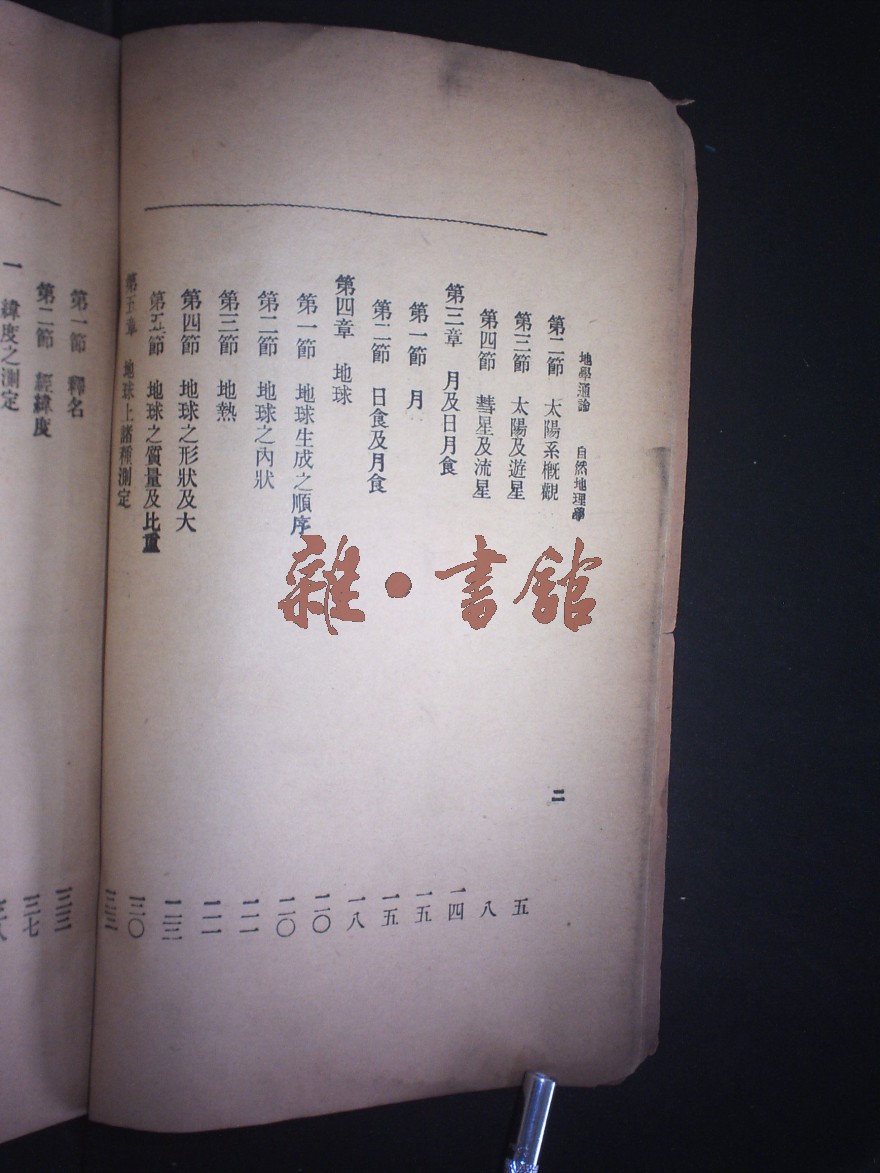 地學通論　自然地理學
二
第二節　太陽系概觀　五
第三節　太陽及遊星　八
第四節　彗星及流星　一四
第三章　月及日月食　一五
第一節　月　一五
第二節　日食及月食　一八
第四章　地球　二〇
第一節　地球生成之順序　二〇
第二節　地球之內狀　二一
第三節　地熱
第四節　地球之形狀及大　二三
第五節　地球之質量及比重　三〇
第五章　地球上諸種測定
第一節　釋名　三三
第二節　經緯度　三七
一　緯度之測定
雜·書館